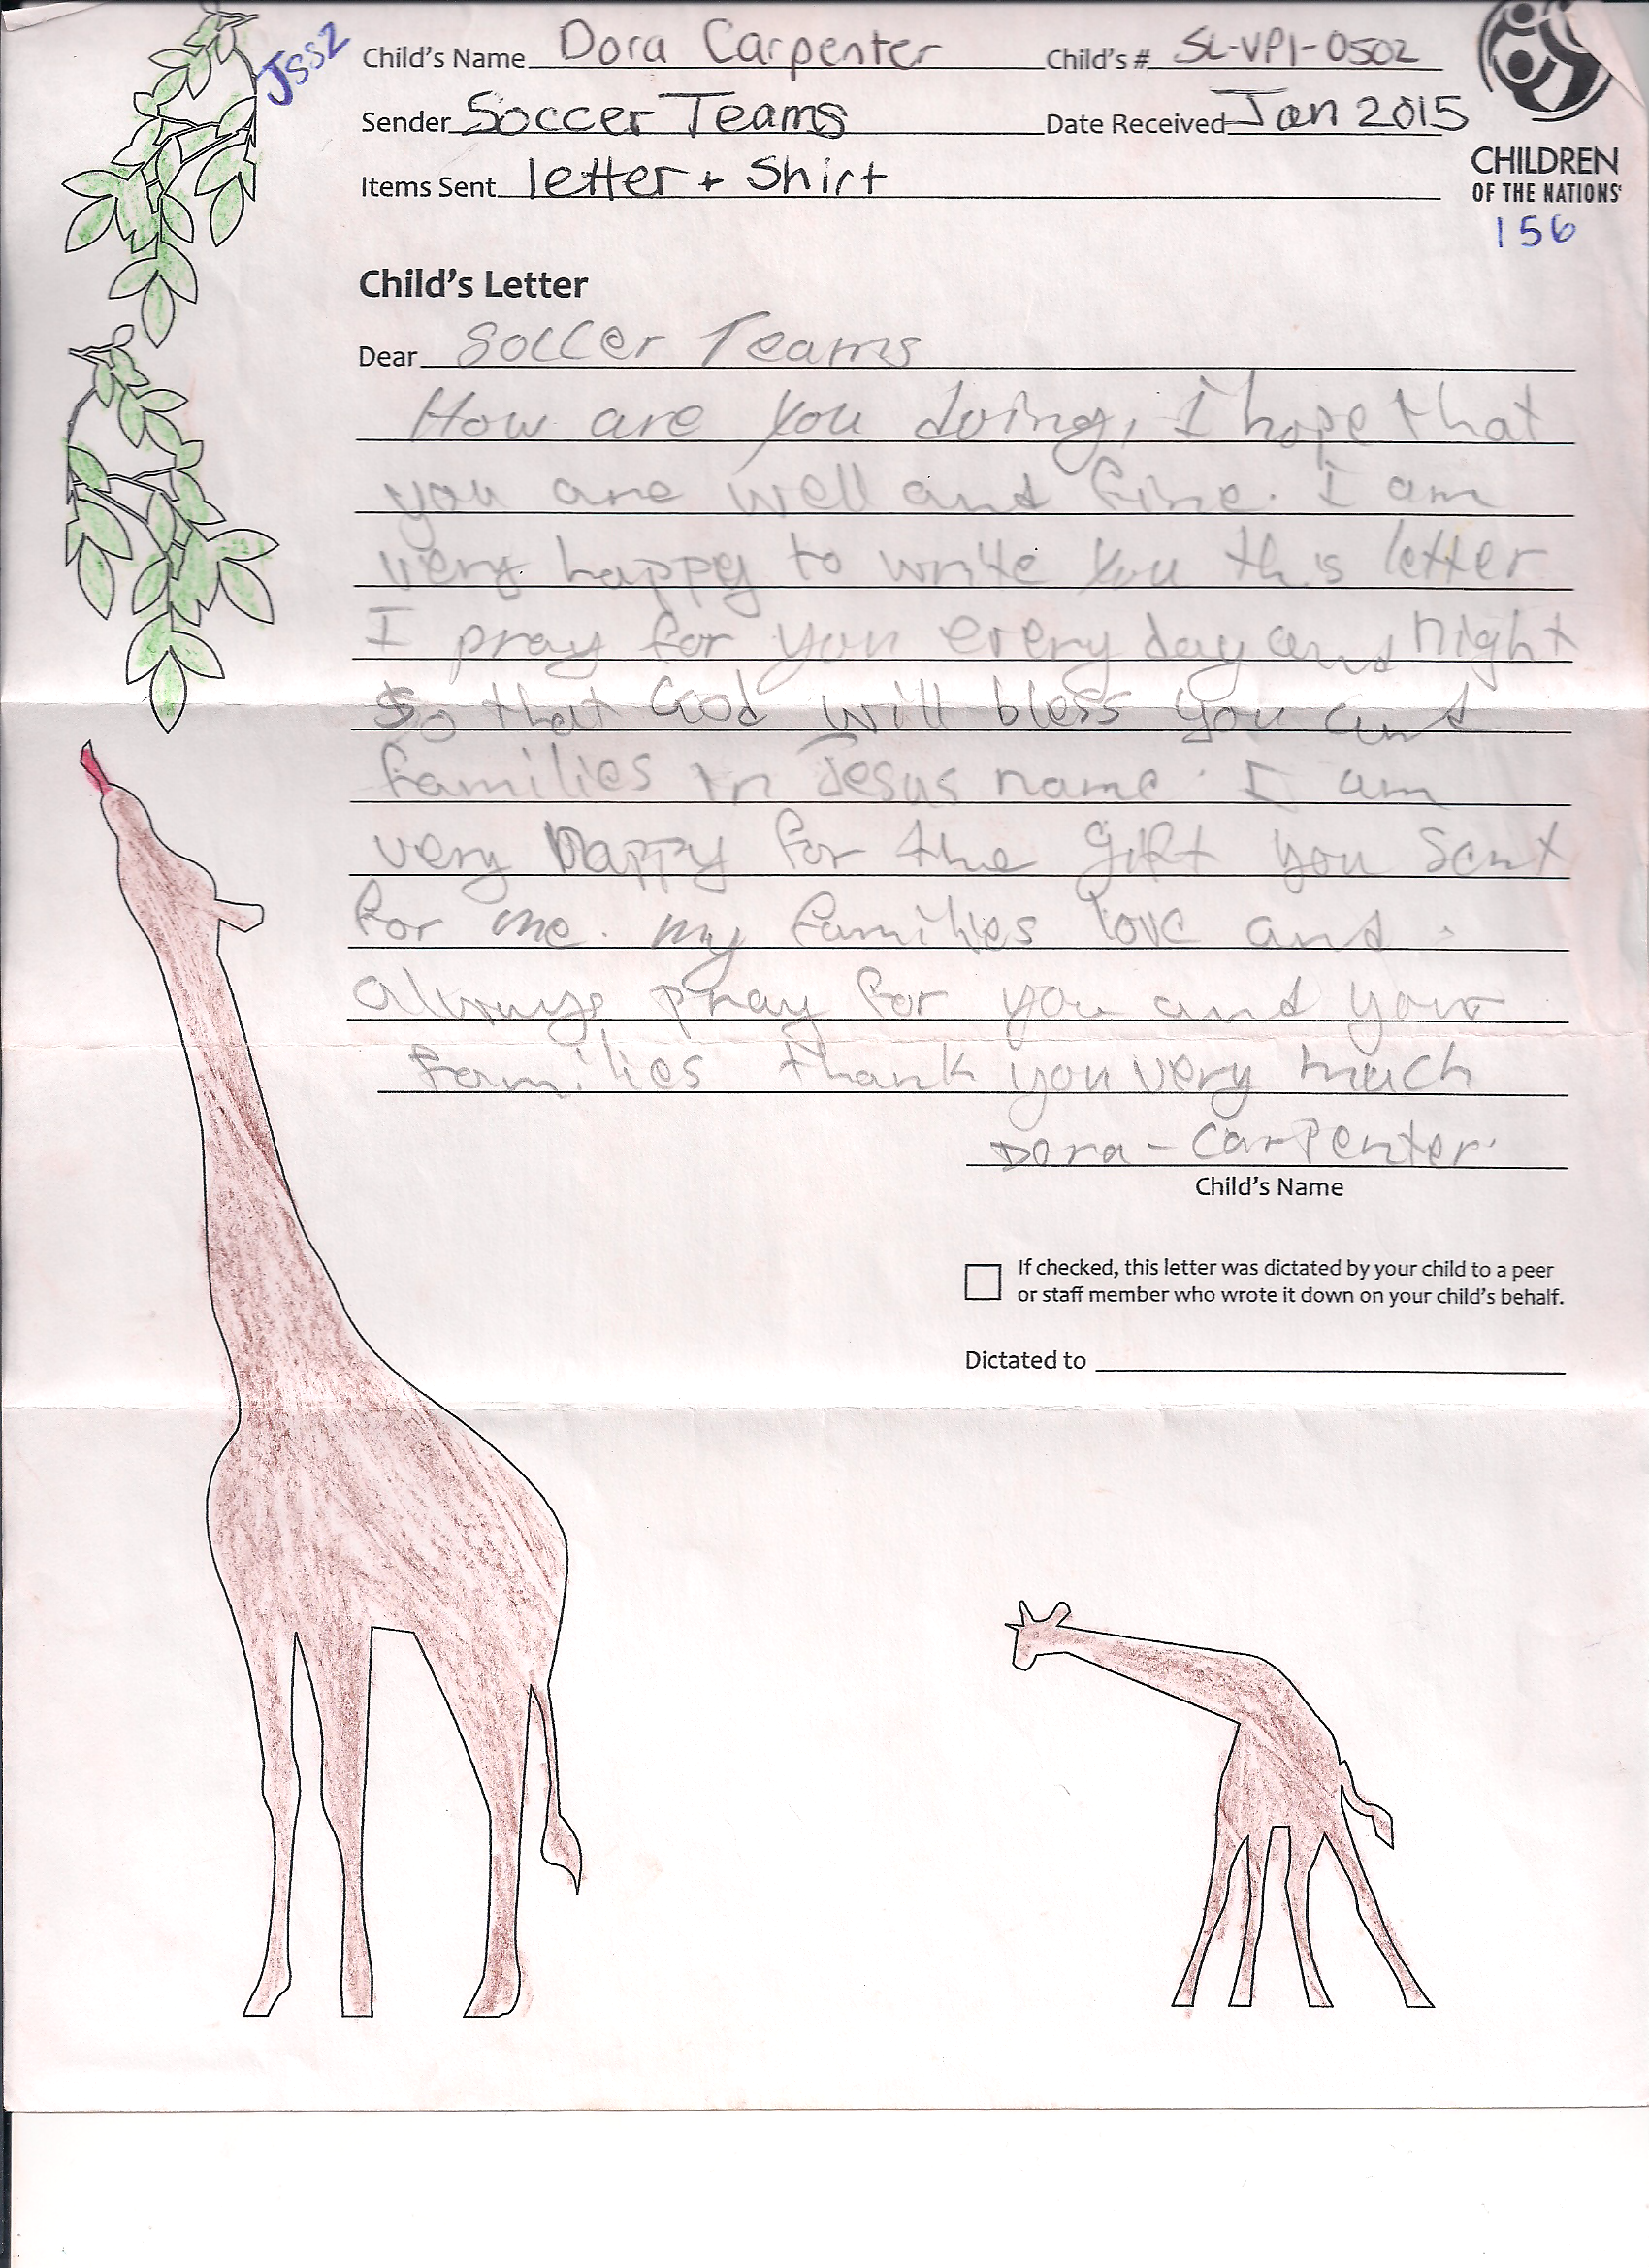 JSS2
Child's Name Dora Carpenter Child's # SL-VP1-0502
Sender Soccer Teams Date Received Jan 2015
Items Sent letter + Shirt
CHILDREN
OF THE NATIONS
156
Child's Letter
Dear Soccer Teams
How are you doing, I hope that
you are well and fine. I am
very happy to write you this letter
I pray for you every day and night
so that God will bless you and
families in Jesus name. I am
very happy for the gift you sent
for me. my families love and
always pray for you and your
families thank you very much
Dora - Carpenter.
Child's Name
If checked, this letter was dictated by your child to a peer
or staff member who wrote it down on your child's behalf.
Dictated to